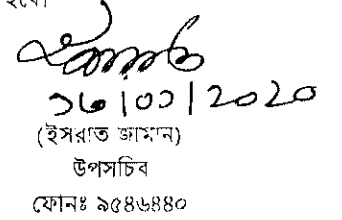 হবে।
১৬|০১|2020
(ইসরাত জামান)
উপসচিব
ফোনঃ ৯৫৪৬৪৪০